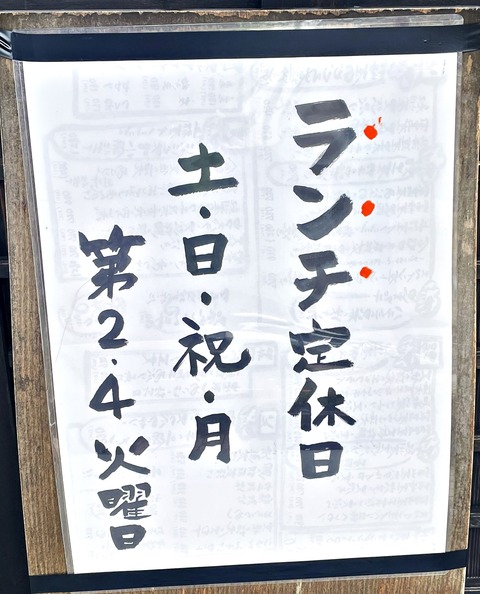 ランチ定休日
土・日・祝・月
第2・4火曜日